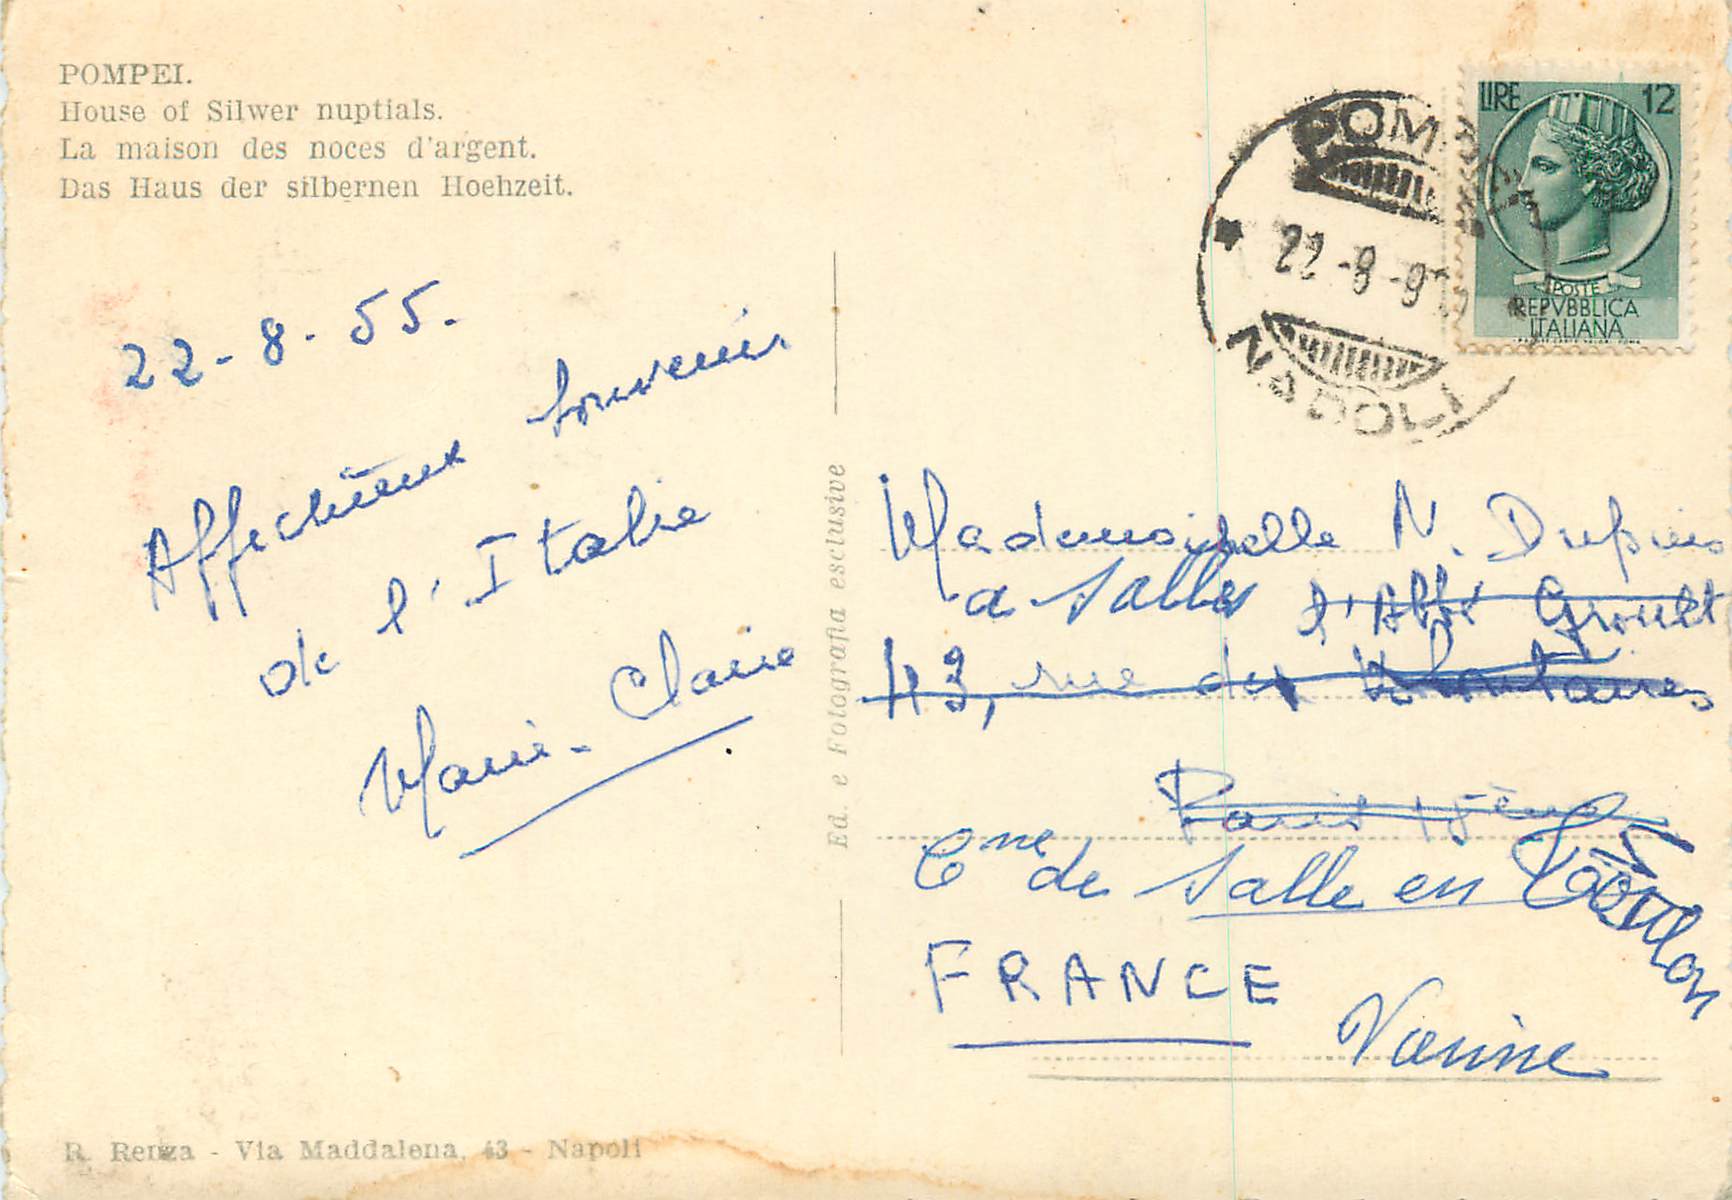 POMPEI.
House of Silwer nuptials.
La maison des noces d'argent.
Das Haus der silbernen Hoehzeit.
22-8-55.
Affectueux souvenir
de l'Italie
Marie-Claire
Ed. e Fotografia esclusive
R. Renza - Via Maddalena, 43 - Napoli
POMPEI
22-8-9
NAPOLI
LIRE 12
POSTE
REPVBBLICA
ITALIANA
Mademoiselle N.
a Salles l'Abbé Groult
43, rue des Volontaires
Paris 15ème
Cne de Salle en Toulon
FRANCE
Vienne